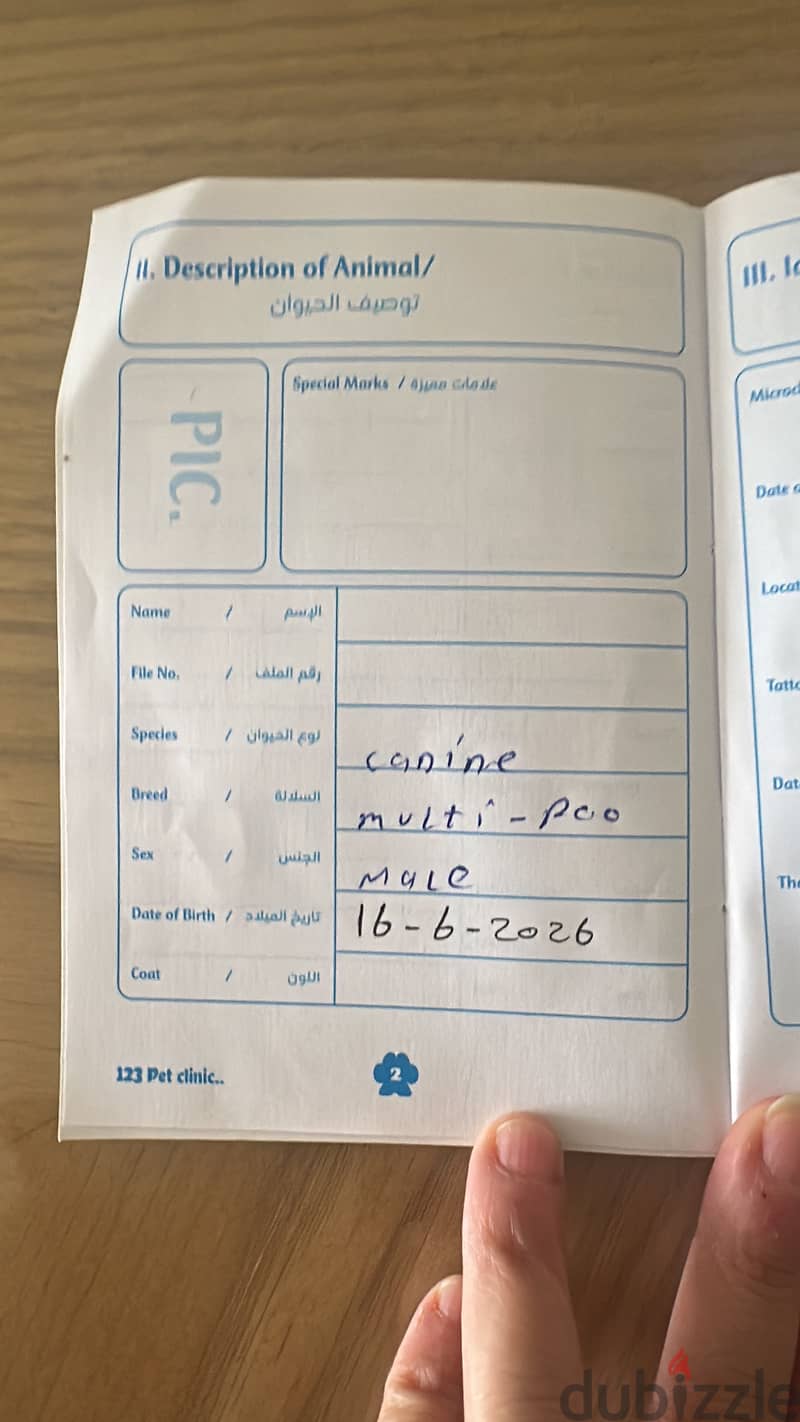 II. Description of Animal/
توصيف الحيوان
PIC.
Special Marks / علامات مميزة
Name / الإسم
File No. / رقم الملف
Species / نوع الحيوان canine
Breed / السلالة multi-poo
Sex / الجنس Male
Date of Birth / تاريخ الميلاد 16-6-2026
Coat / اللون
123 Pet clinic..
2
III.
Date
dubizzle